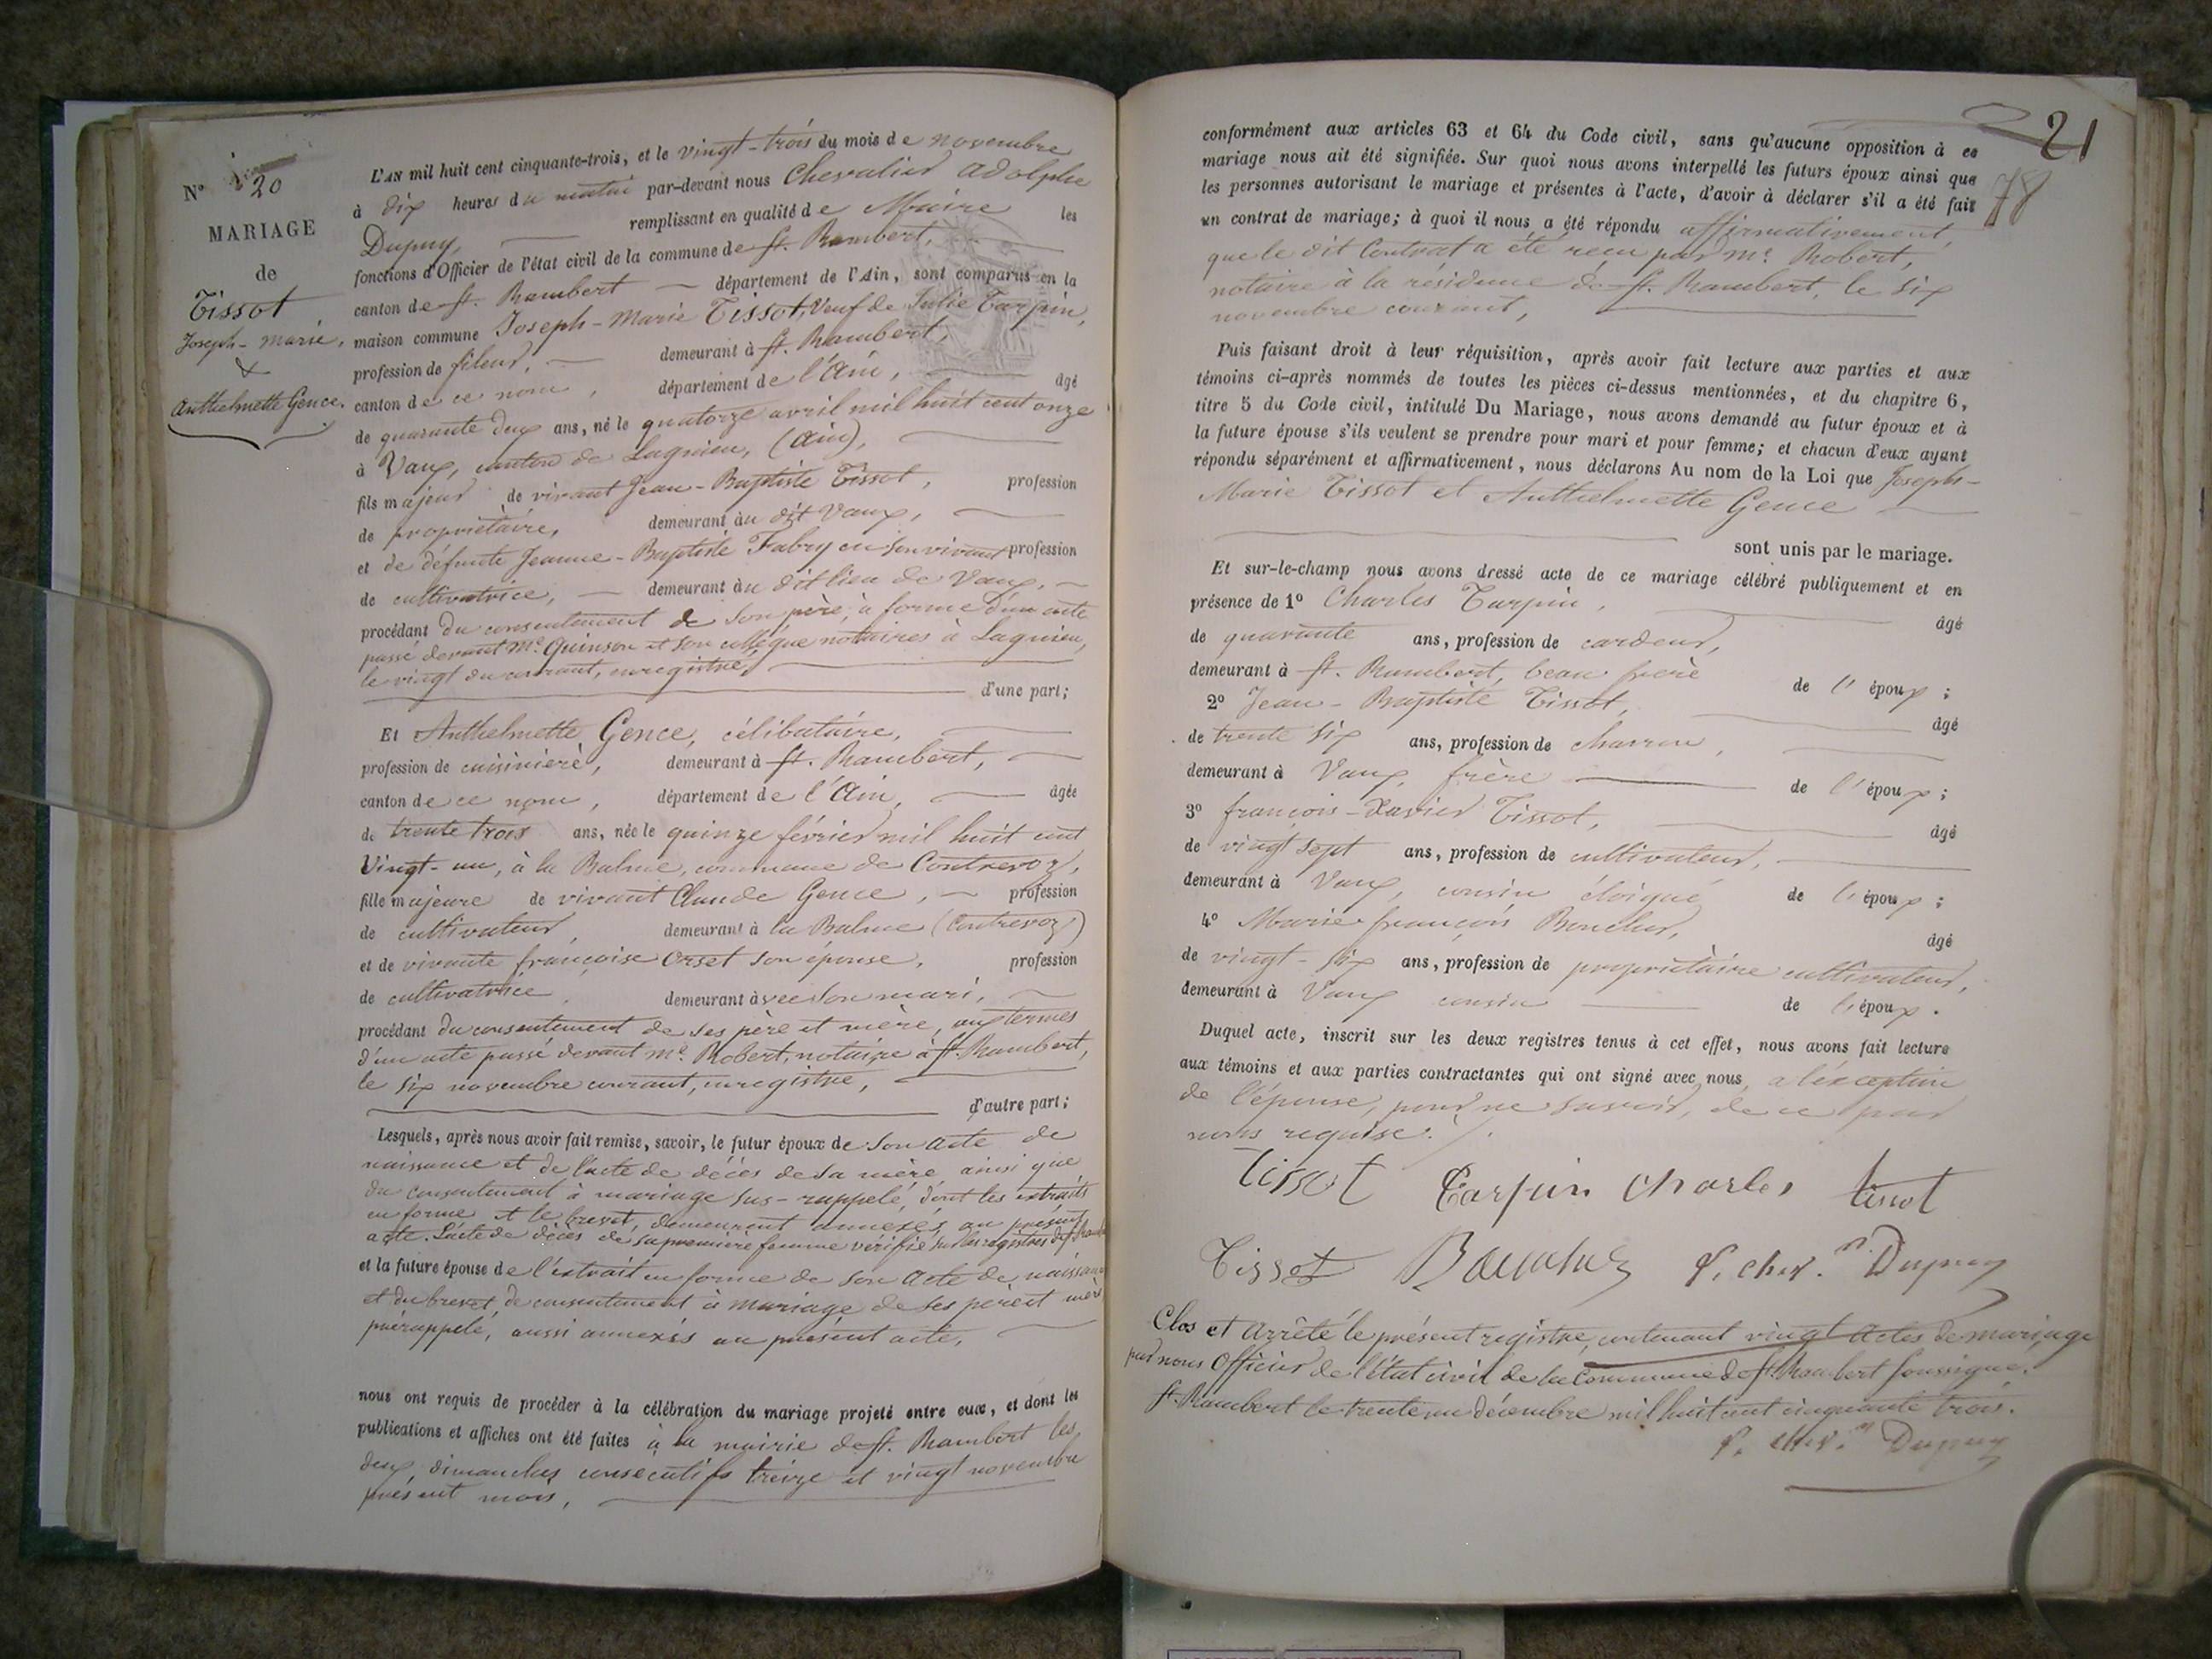 N° 20
MARIAGE
de
Tissot
Joseph-Marie,
&
Anthelmette Gence.
L'AN mil huit cent cinquante-trois, et le vingt-trois du mois de novembre
à dix heures du matin par-devant nous Chevalier Adolphe
Dupuy, remplissant en qualité de Maire les
fonctions d'Officier de l'état civil de la commune de St. Rambert,
canton de St. Rambert département de l'Ain, sont comparus en la
maison commune Joseph-Marie Tissot, Veuf de Julie Tarpin,
profession de fileur, demeurant à St. Rambert,
canton de ce nom, département de l'Ain, âgé
de quarante deux ans, né le quatorze avril mil huit cent onze
à Vaux, canton de Lagnieu, (Ain),
fils majeur de vivant Jean-Baptiste Tissot, profession
de propriétaire, demeurant au dit Vaux,
et de défunte Jeanne-Baptiste Fabry en son vivant profession
de cultivatrice, demeurant au dit lieu de Vaux,
procédant du consentement de son père, à forme d'un acte
passé devant Me. Quinson et son collègue notaires à Lagnieu,
le vingt du courant, enregistré,
d'une part;
Et Anthelmette Gence, célibataire,
profession de cuisinière, demeurant à St. Rambert,
canton de ce nom, département de l'Ain, âgée
de trente trois ans, née le quinze février mil huit cent
vingt-un, à la Balme, commune de Contrevoz,
fille majeure de vivant Claude Gence, profession
de cultivateur, demeurant à la Balme (Contrevoz)
et de vivante françoise Orset son épouse, profession
de cultivatrice, demeurant avec son mari,
procédant du consentement de ses père et mère, aux termes
d'un acte passé devant Me. Robert, notaire à St. Rambert,
le six novembre courant, enregistré,
d'autre part;
Lesquels, après nous avoir fait remise, savoir, le futur époux de son acte de
naissance et de l'acte de décès de sa mère ainsi que
du consentement à mariage sus-rappelé, dont les extraits
en forme et le brevet, demeurent annexés au présent
acte. L'acte de décès de sa première femme vérifié sur les registres de St. Rambert
et la future épouse de l'extrait en forme de son acte de naissance
et du brevet de consentement à mariage de ses père et mère
prérappelé, aussi annexés au présent acte,
nous ont requis de procéder à la célébration du mariage projeté entre eux, et dont les
publications et affiches ont été faites à la mairie de St. Rambert les
deux dimanches consécutifs treize et vingt novembre
présent mois,
21
78
conformément aux articles 63 et 64 du Code civil, sans qu'aucune opposition à ce
mariage nous ait été signifiée. Sur quoi nous avons interpellé les futurs époux ainsi que
les personnes autorisant le mariage et présentes à l'acte, d'avoir à déclarer s'il a été fait
un contrat de mariage; à quoi il nous a été répondu affirmativement,
que le dit Contrat a été reçu par Me. Robert,
notaire à la résidence de St. Rambert, le six
novembre courant,
Puis faisant droit à leur réquisition, après avoir fait lecture aux parties et aux
témoins ci-après nommés de toutes les pièces ci-dessus mentionnées, et du chapitre 6,
titre 5 du Code civil, intitulé Du Mariage, nous avons demandé au futur époux et à
la future épouse s'ils veulent se prendre pour mari et pour femme; et chacun d'eux ayant
répondu séparément et affirmativement, nous déclarons Au nom de la Loi que Joseph-
Marie Tissot et Anthelmette Gence
sont unis par le mariage.
Et sur-le-champ nous avons dressé acte de ce mariage célébré publiquement et en
présence de 1° Charles Tarpin, âgé
de quarante ans, profession de cardeur,
demeurant à St. Rambert, beau frère de l'époux;
2° Jean-Baptiste Tissot, âgé
de trente six ans, profession de charron,
demeurant à Vaux, frère de l'époux;
3° françois-Xavier Tissot, âgé
de vingt sept ans, profession de cultivateur,
demeurant à Vaux, cousin éloigné de l'époux;
4° Marie françois Boucher, âgé
de vingt-six ans, profession de propriétaire cultivateur,
demeurant à Vaux cousin de l'époux.
Duquel acte, inscrit sur les deux registres tenus à cet effet, nous avons fait lecture
aux témoins et aux parties contractantes qui ont signé avec nous, à l'exception
de l'épouse, pour ne savoir, de ce par
nous requise.
Tissot Tarpin Charles tissot
Tissot P. chev. Dupuy
Clos et Arrêté le présent registre, contenant vingt Actes de mariage
par nous Officier de l'état civil de la Commune de St. Rambert soussigné.
St. Rambert le trente un décembre mil huit cent cinquante trois.
P. chev. Dupuy